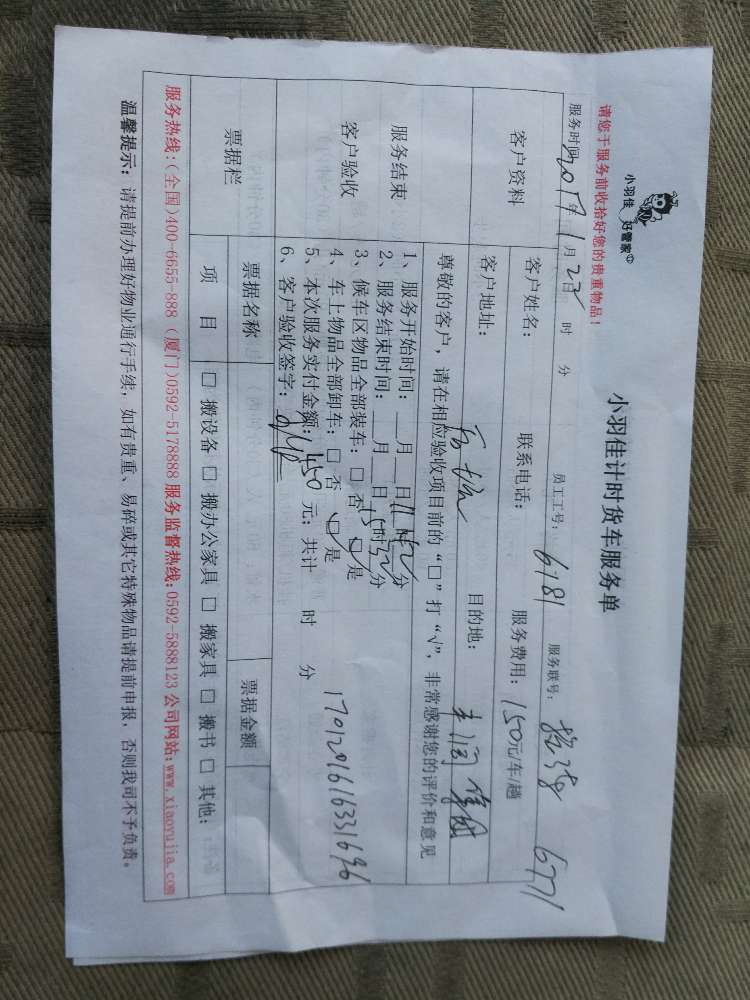 小羽佳 好管家
小羽佳计时货车服务单
请您于服务前收拾好您的贵重物品！
服务时间：2017年1月22日 时 分 员工工号：6181 服务联号： 6771
客户资料
客户姓名： 联系电话： 服务费用：150元/车/趟
客户地址： 目的地：
尊敬的客户，请在相应验收项目前的“□”打“√”，非常感谢您的评价和意见
服务结束
客户验收
1、服务开始时间：__月__日11时 分
2、服务结束时间：__月__日15时 分
3、候车区物品全部装车：□ 否 □ 是
4、车上物品全部卸车：□ 否 □ 是
5、本次服务实付金额： 元；共计 时 分
6、客户验收签字：
1701201616331696
票据栏
票据名称 票据金额
项 目 □ 搬设备 □ 搬办公家具 □ 搬家具 □ 搬书 □ 其他：
服务热线：（全国）400-6655-888（厦门）0592-5178888 服务监督热线：0592-5888123 公司网站：www.xiaoyujia.com
温馨提示：请提前办理好物业通行手续，如有贵重、易碎或其它特殊物品请提前申报，否则我司不予负责。